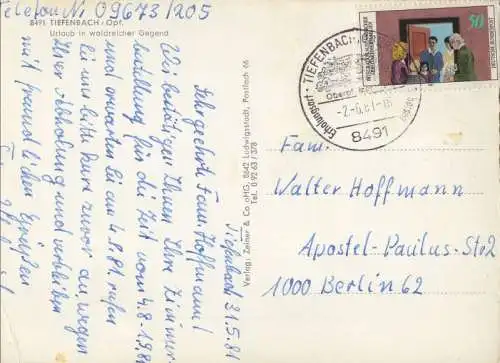 Telefon Nr 09673/205
8491 TIEFENBACH/Opf.
Urlaub in waldreicher Gegend
Tiefenbach 21.5.81
Sehr geehrte Fam. Hoffmann!
Wir bestätigen Ihnen Ihre Zimmer
bestellung für die Zeit vom 4.8-19.8
und erwarten Sie am 4.8.81. rufen
Sie uns bitte kurz zuvor an, wegen
Ihrer Abholung und verbleiben
mit freundlichen Grüßen
Verlag: Zeiner & Co. oHG, 8642 Ludwigsstadt, Postfach 66
Tel. 0 92 63 / 378
TIEFENBACH
Erholungsort
8491
50
DEUTSCHE BUNDESPOST
Fam.
Walter Hoffmann
Apostel-Paulus-Str 2
1000 Berlin 62